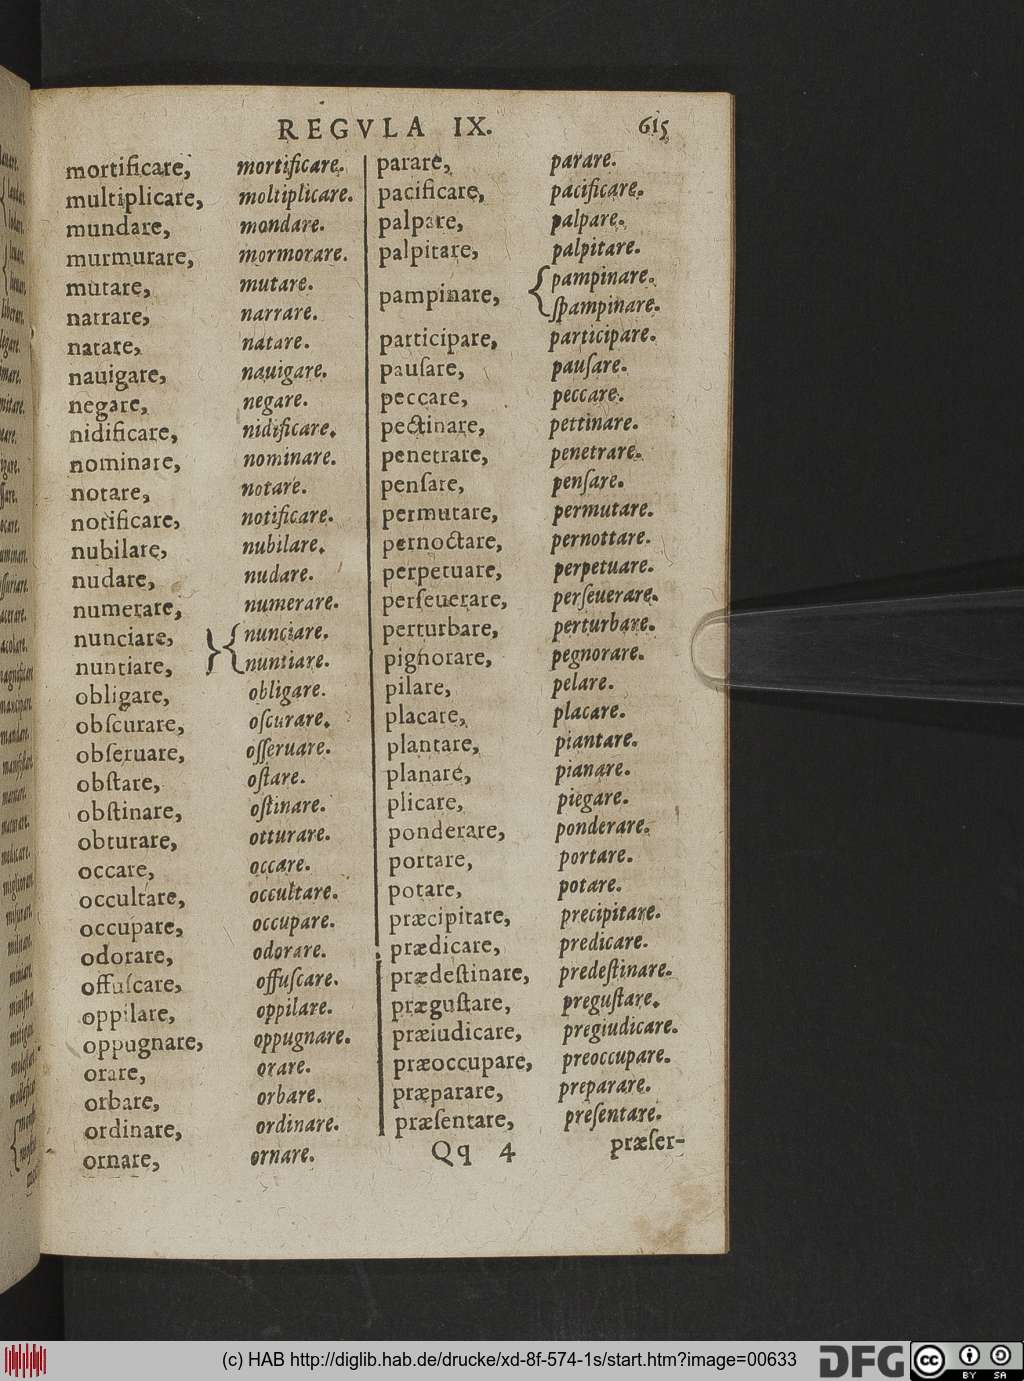 REGVLA IX. 615
mortificare, mortificare.
multiplicare, moltiplicare.
mundare, mondare.
murmurare, mormorare.
mutare, mutare.
narrare, narrare.
natare, natare.
nauigare, nauigare.
negare, negare.
nidificare, nidificare.
nominare, nominare.
notare, notare.
notificare, notificare.
nubilare, nubilare.
nudare, nudare.
numerare, numerare.
nunciare, nunciare.
nuntiare, nuntiare.
obligare, obligare.
obſcurare, oſcurare.
obſeruare, oſſeruare.
obſtare, oſtare.
obſtinare, oſtinare.
obturare, otturare.
occare, occare.
occultare, occultare.
occupare, occupare.
odorare, odorare.
offuſcare, offuſcare.
oppilare, oppilare.
oppugnare, oppugnare.
orare, orare.
orbare, orbare.
ordinare, ordinare.
ornare, ornare.
parare, parare.
pacificare, pacificare.
palpare, palpare.
palpitare, palpitare.
pampinare, { pampinare.
ſpampinare.
participare, participare.
pauſare, pauſare.
peccare, peccare.
pectinare, pettinare.
penetrare, penetrare.
penſare, penſare.
permutare, permutare.
pernoctare, pernottare.
perpetuare, perpetuare.
perſeuerare, perſeuerare.
perturbare, perturbare.
pignorare, pegnorare.
pilare, pelare.
placare, placare.
plantare, piantare.
planare, pianare.
plicare, piegare.
ponderare, ponderare.
portare, portare.
potare, potare.
præcipitare, precipitare.
prædicare, predicare.
prædeſtinare, predeſtinare.
præguſtare, preguſtare.
præiudicare, pregiudicare.
præoccupare, preoccupare.
præparare, preparare.
præſentare, preſentare.
Qq 4 præſer-
(c) HAB http://diglib.hab.de/drucke/xd-8f-574-1s/start.htm?image=00633
DFG
cc BY SA